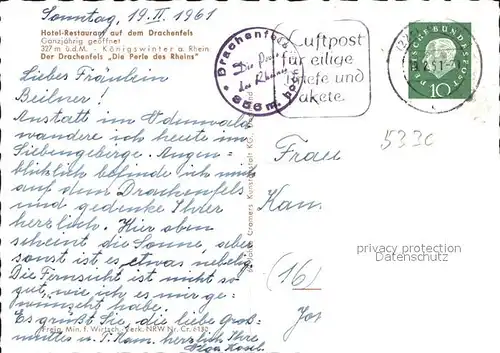 Sonntag, 19. II. 1961
Hotel-Restaurant auf dem Drachenfels
Ganzjährig geöffnet
327 m ü.d.M. - Königswinter a. Rhein
Der Drachenfels „Die Perle des Rheins"
Liebes Fräulein
Beilner!
Anstatt im Odenwald
wandere ich heute im
Siebengebirge. Augen-
blicklich befinde ich mich
auf dem Drachenfels
und gedenke Ihrer
herzlich. Hier oben
scheint die Sonne, aber
sonst ist es etwas nebelig.
Die Fernsicht ist nicht so
gut, wie ich es mir ge-
wünscht habe.
Es grüßt Sie, die liebe Groß-
mutter u. T. Kam. herzlich Ihre
Freig. Min. f. Wirtsch. Verk. NRW Nr.
Drachenfels
Die Perle
des Rheines
Luftpost
für eilige
Briefe und
Pakete
DEUTSCHE BUNDESPOST
10
5330
Frau
Kam
(16)
Cramers Kunstanstalt KG.,
privacy protection
Datenschutz